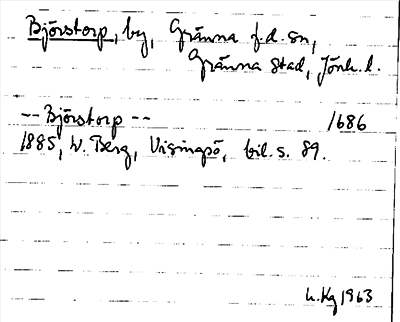 Björstorp, by, Gränna f.d. sn,
Gränna stad, Jönk. l.
-- Björstorp -- 1686
1885, W. Berg, Visingsö, bil. s. 89.
L. Kg 1963